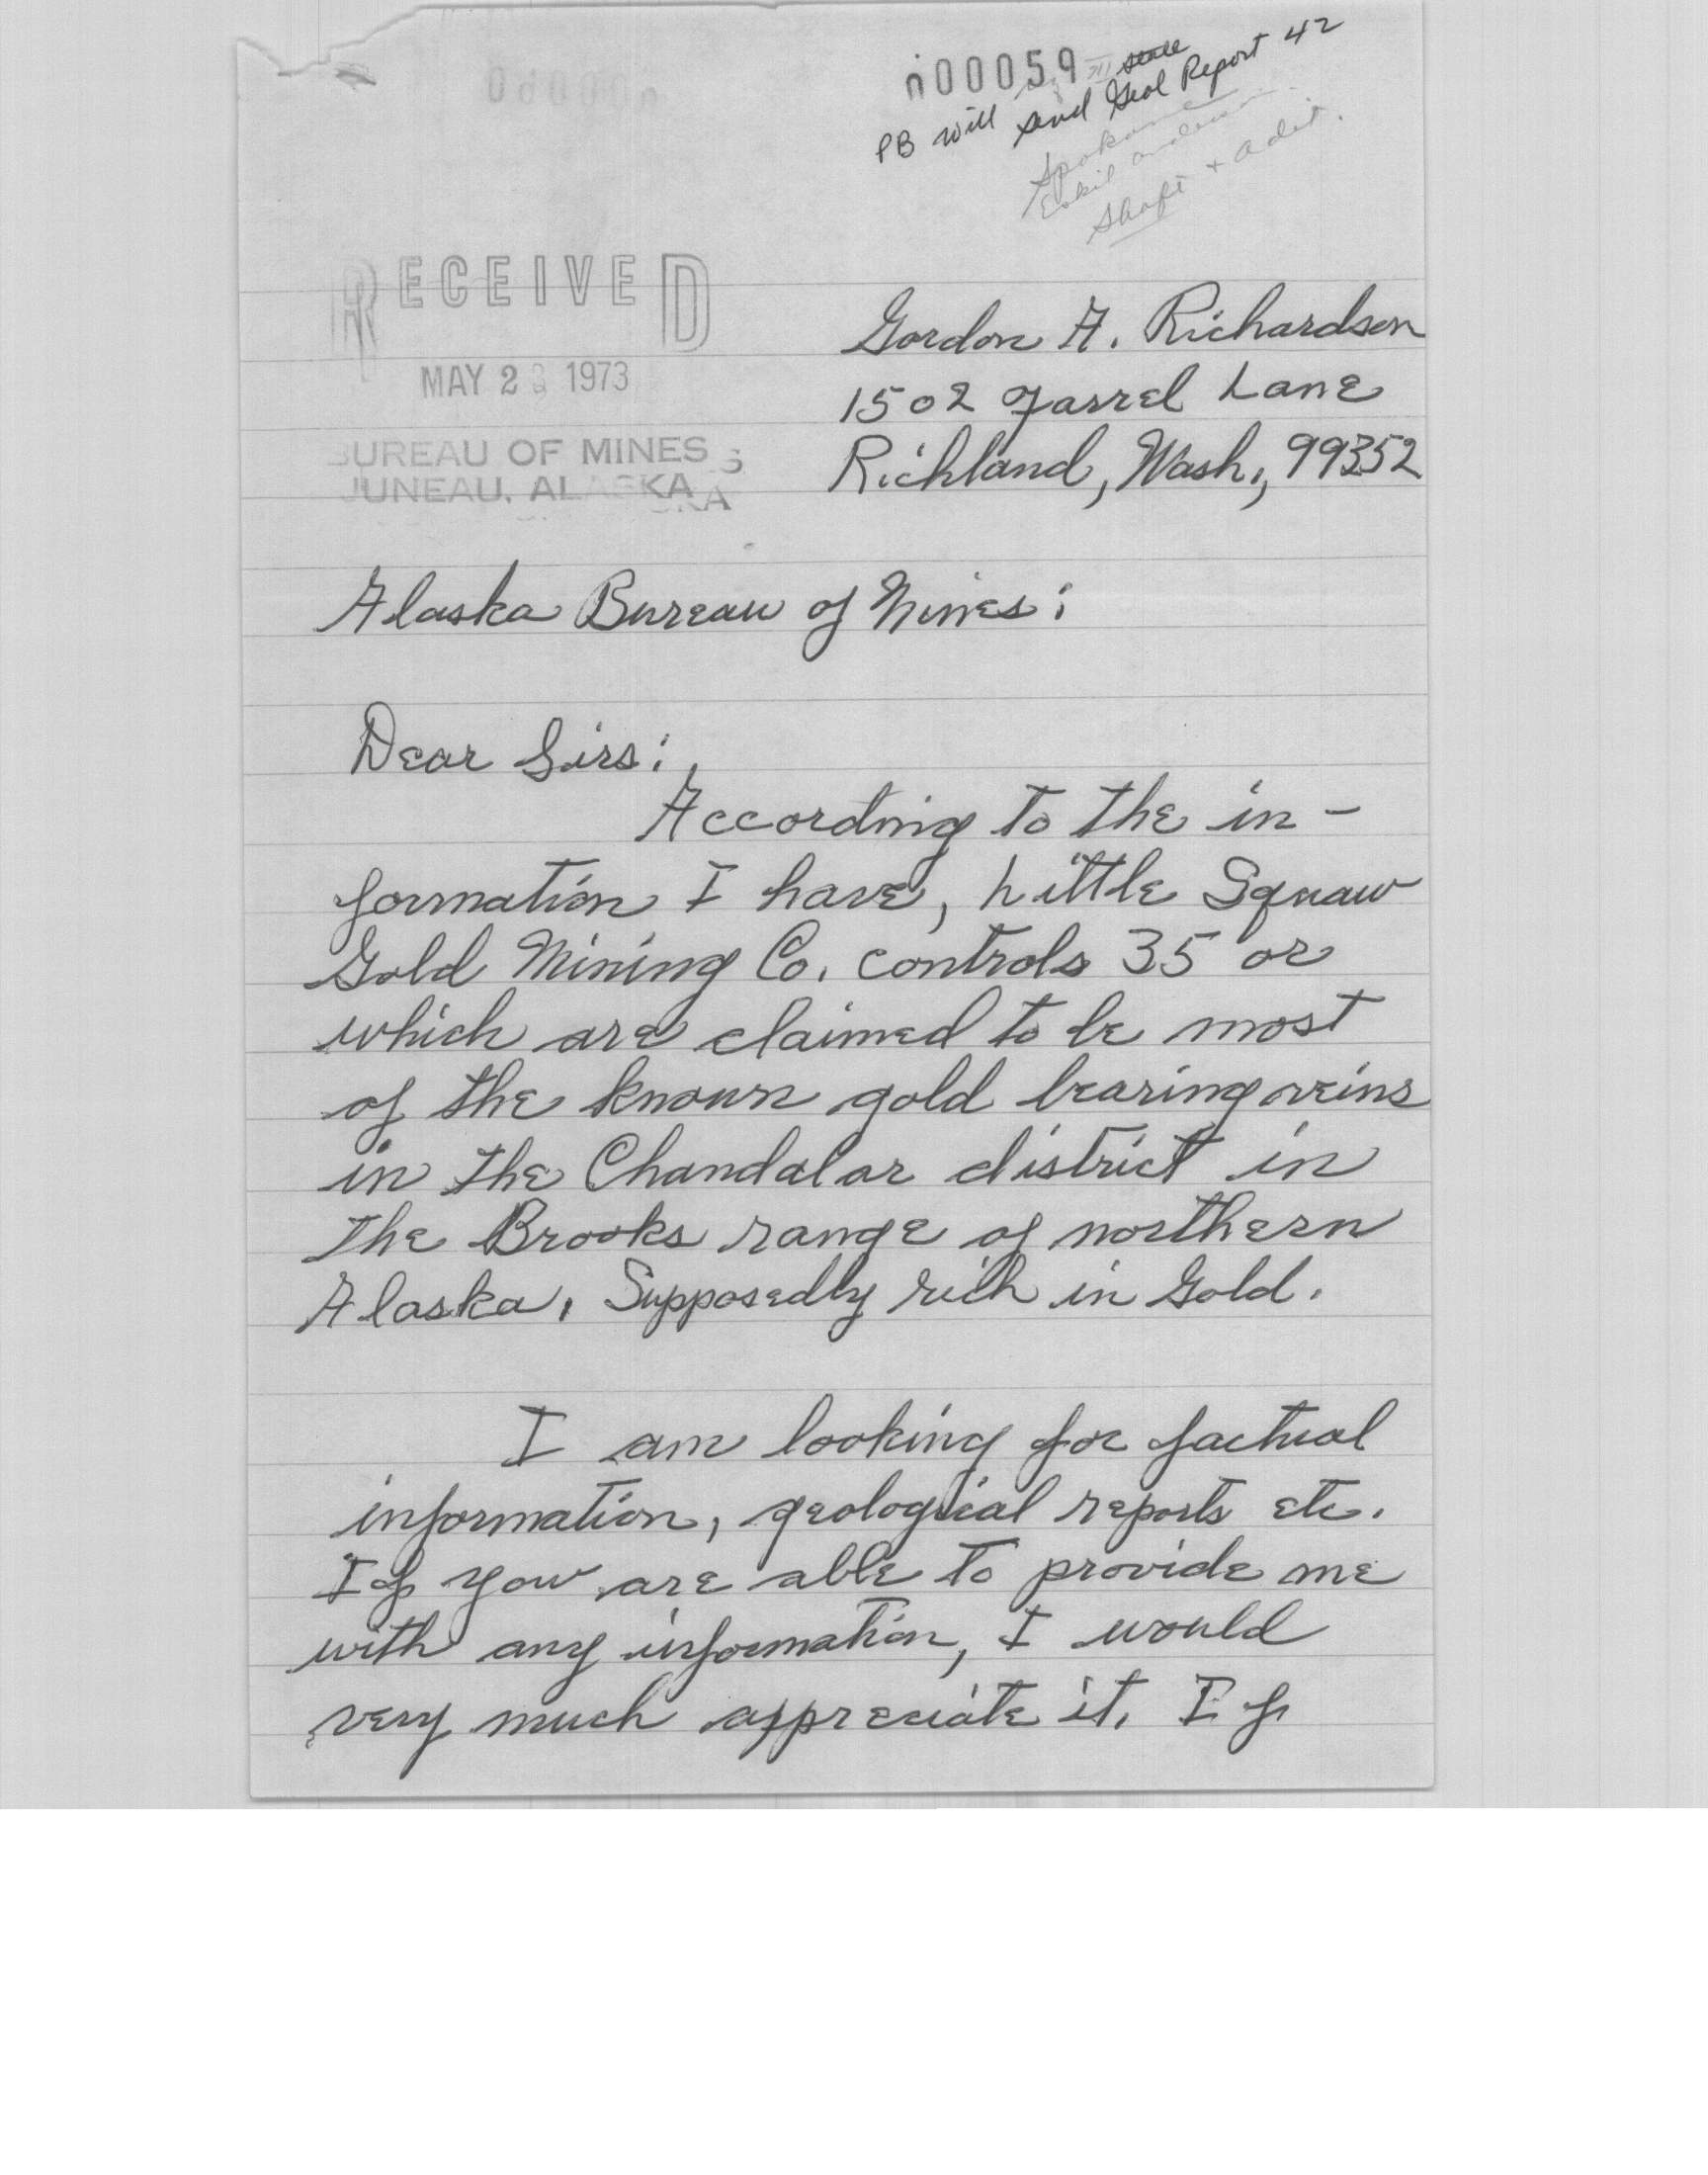 000059
state
PB will send Geol Report 42
Spokane
Eskil Anderson
Shaft + adit.
RECEIVED
MAY 2 1973
BUREAU OF MINES
JUNEAU, ALASKA
Gordon A. Richardson
1502 Farrel Lane
Richland, Wash., 99352
Alaska Bureau of Mines:
Dear Sirs:
According to the in-
formation I have, Little Squaw
Gold Mining Co. controls 35 or
which are claimed to be most
of the known gold bearing veins
in the Chandalar district in
the Brooks range of northern
Alaska. Supposedly rich in Gold.
I am looking for factual
information, geological reports etc.
If you are able to provide me
with any information, I would
very much appreciate it. If